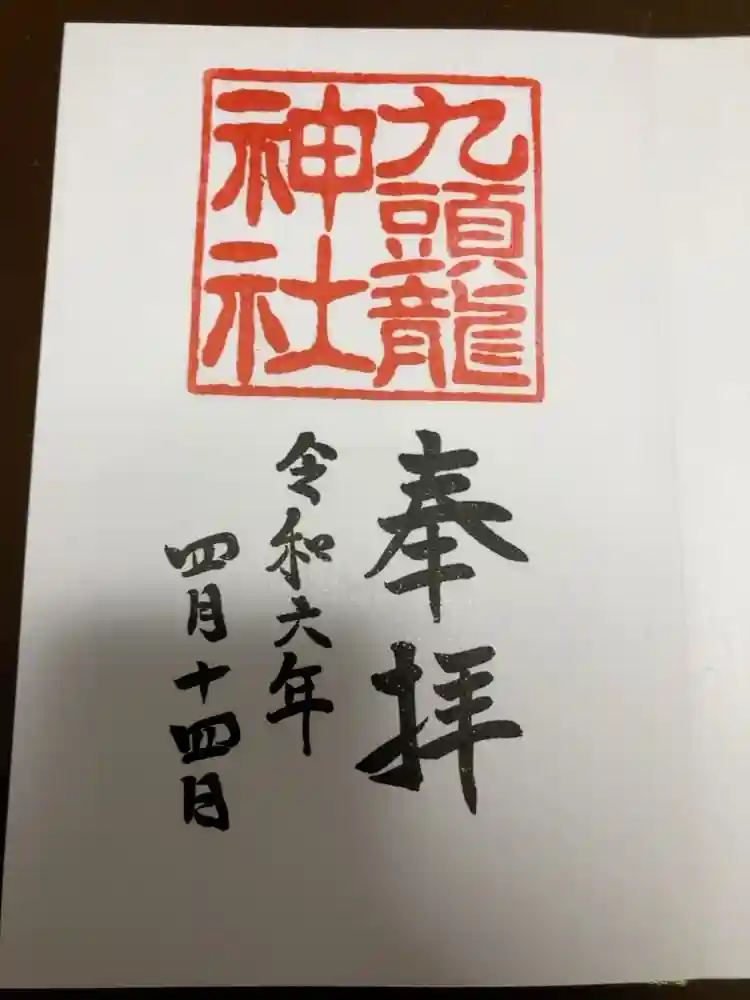 九頭龍
神社
奉拝
令和六年
四月十四日